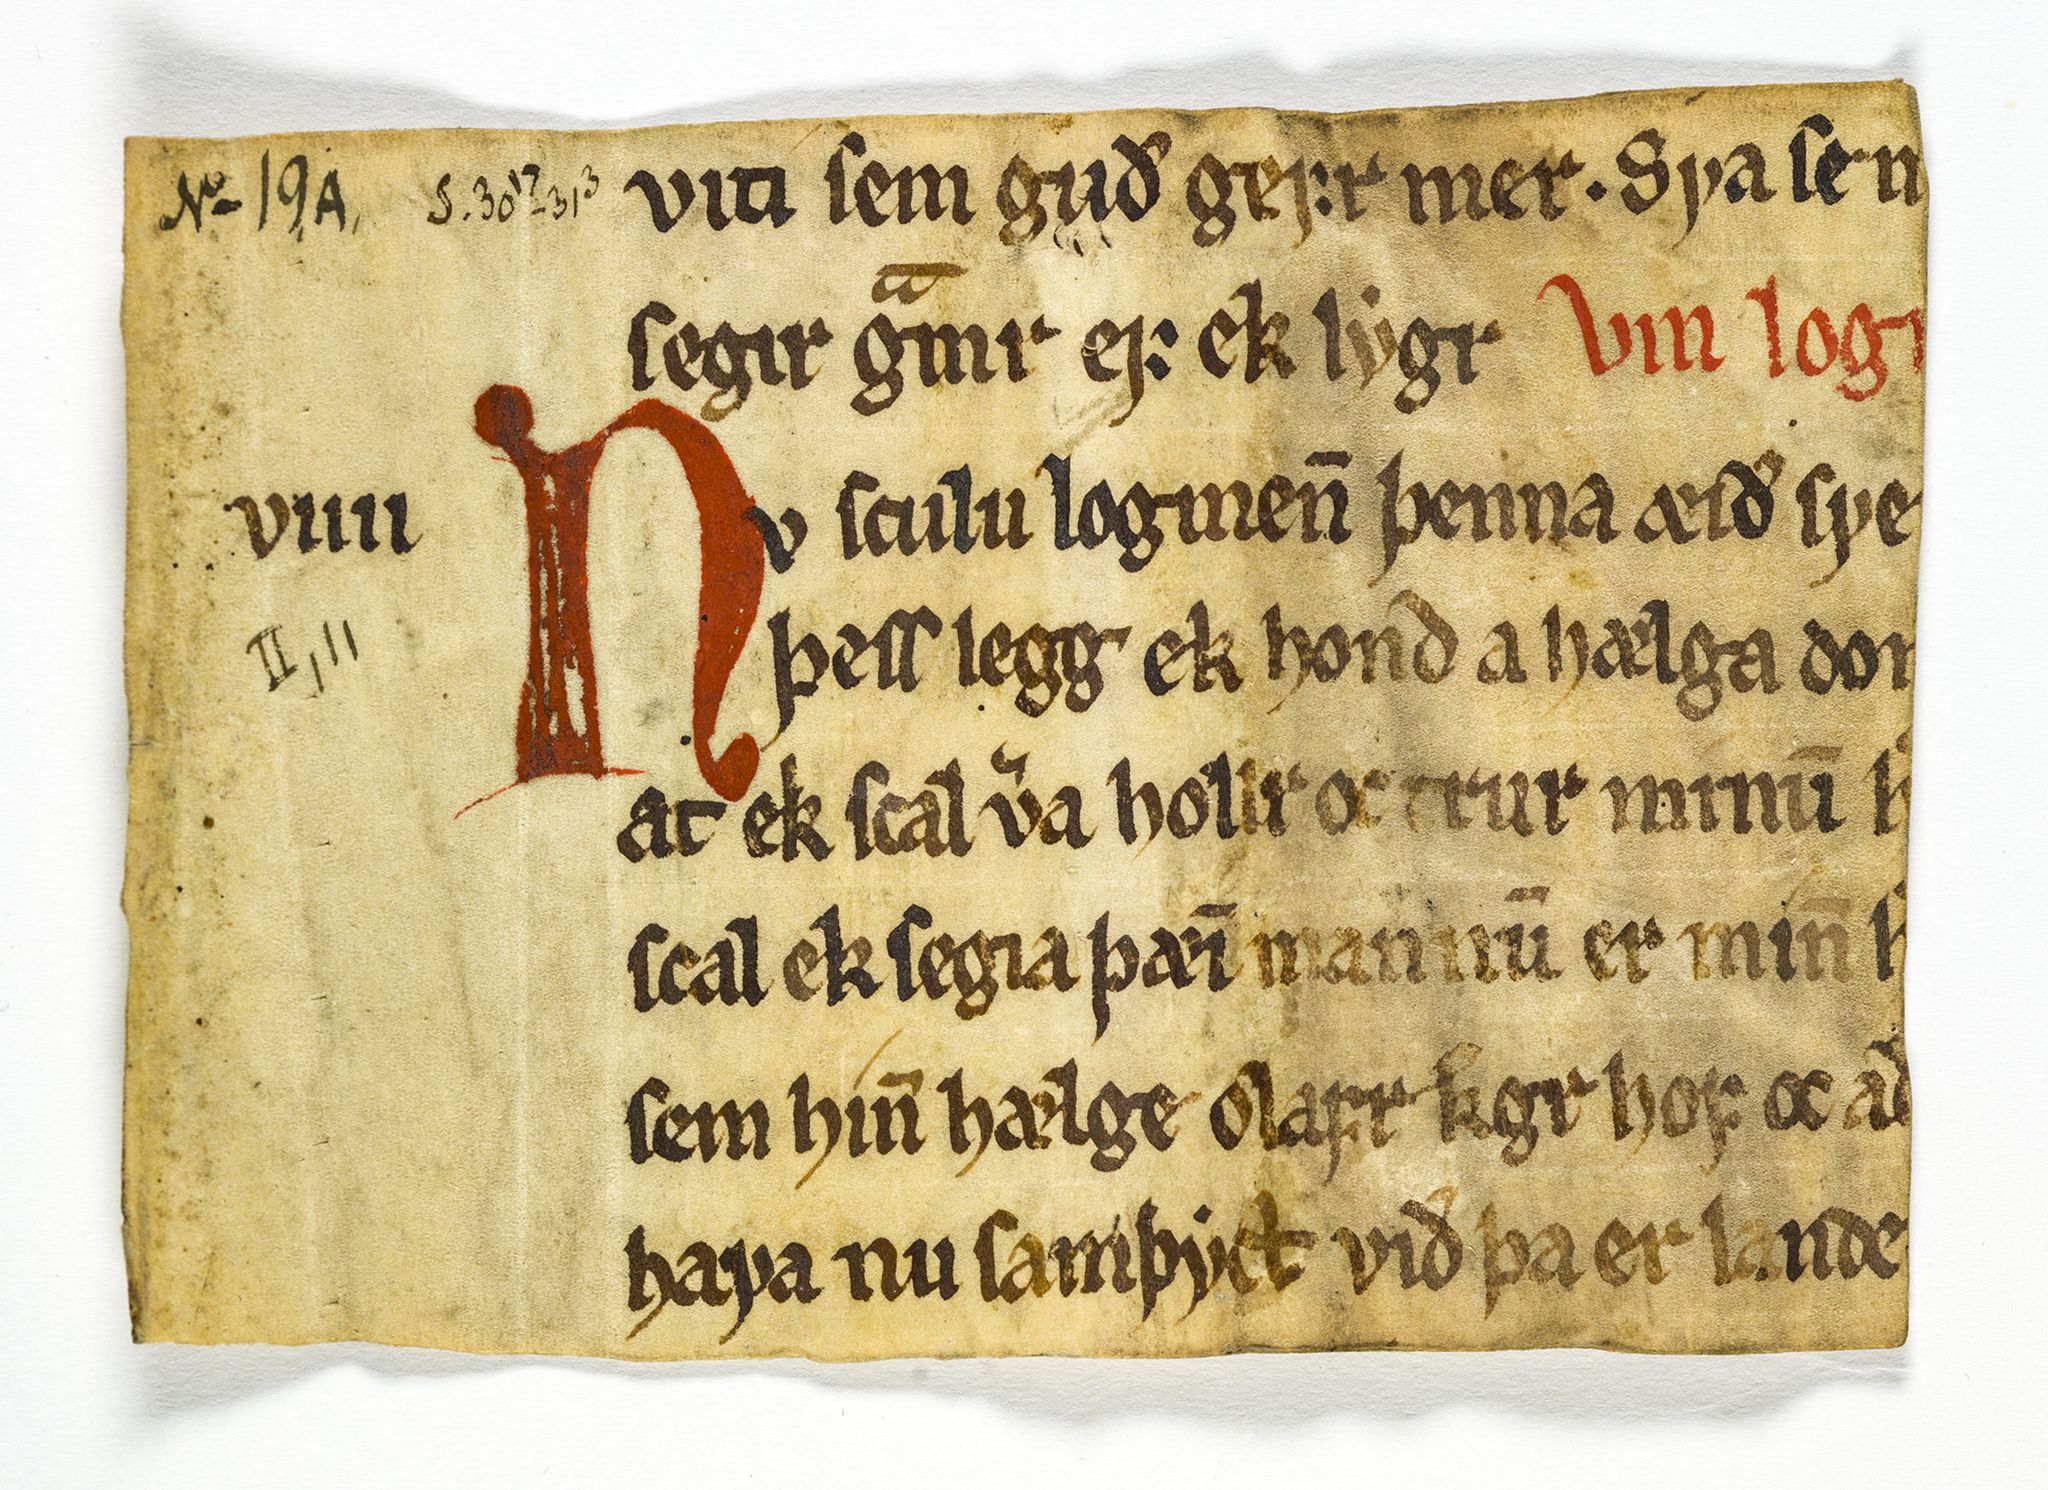 No 19A, S. 30¹⁷-31³
viti sem guð gefr mer. Sva se m
segir gͣ̄mr ef ek lygr viii logt
viiii
Nv sculu logmen̄ þenna æið sve
II, 11
þess legg ek hond a hælga dom
at ek scal v͛a hollr oc trur minū
scal ek segia þæī mannū er min̄
sem hin̄ hælge olafr k̄gr hof oc að
hava nu samþyct við þa er lande